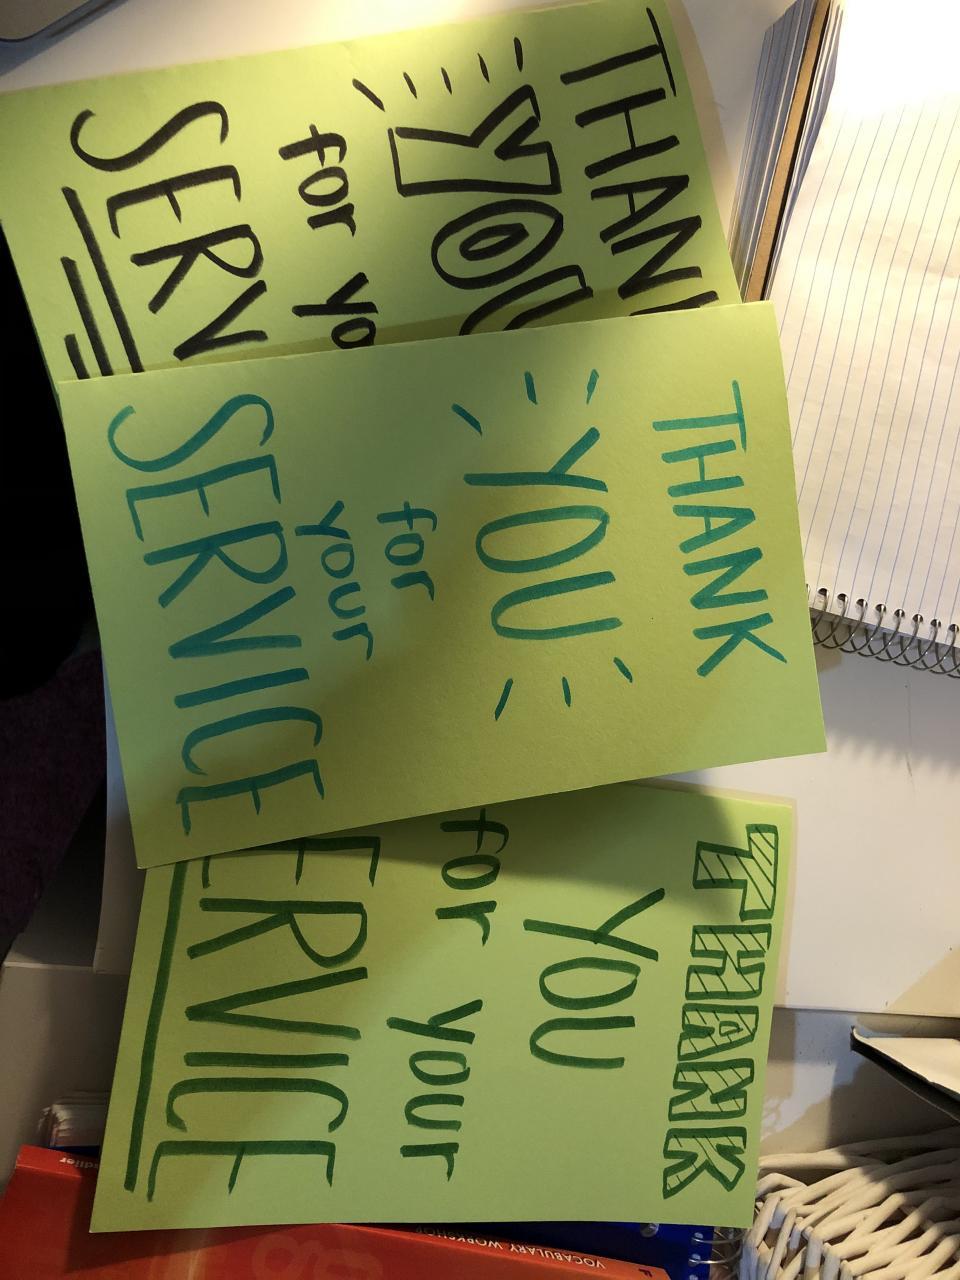 THANK
YOU
for
your
SERVICE
THANK
YOU
for your
ERVICE
THAN
YOU
for yo
SERV
VOCABULARY WORKSHOP